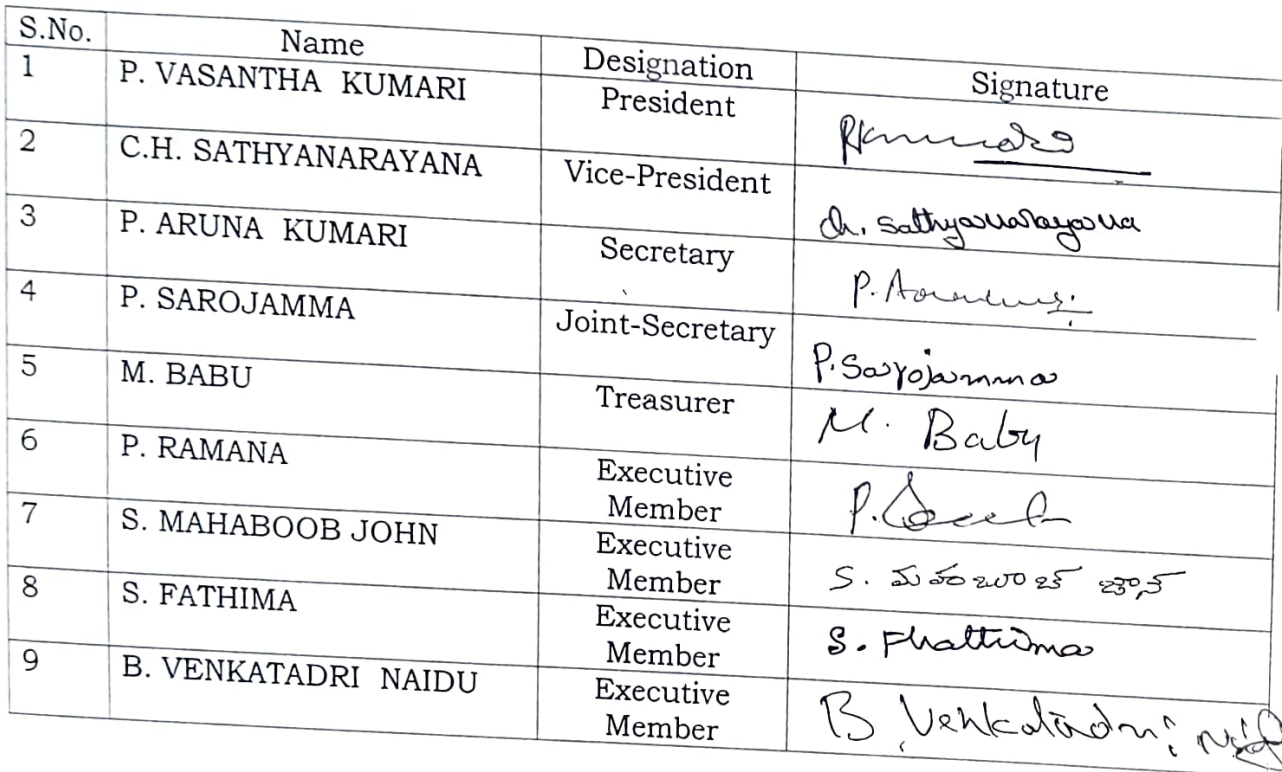 S.No. Name Designation Signature
1 P. VASANTHA KUMARI President
2 C.H. SATHYANARAYANA Vice-President Ch. Sathyanarayana
3 P. ARUNA KUMARI Secretary P.
4 P. SAROJAMMA Joint-Secretary P. Sarojamma
5 M. BABU Treasurer M. Babu
6 P. RAMANA Executive
Member P.
7 S. MAHABOOB JOHN Executive
Member S. మహబూబ్ జాన్
8 S. FATHIMA Executive
Member S. Fhathima
9 B. VENKATADRI NAIDU Executive
Member B Venkatadri Naidu